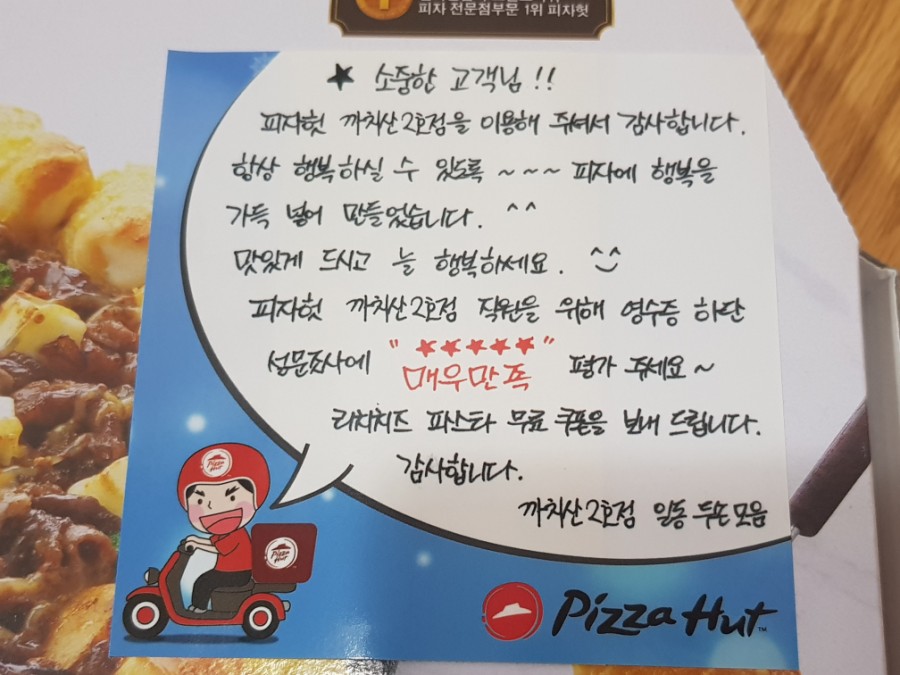 피자 전문점부문 1위 피자헛
★ 소중한 고객님 !!
피자헛 까치산2호점을 이용해 주셔서 감사합니다.
항상 행복하실 수 있도록 ~~~ 피자에 행복을
가득 넣어 만들었습니다. ^^
맛있게 드시고 늘 행복하세요. ^^
피자헛 까치산2호점 직원을 위해 영수증 하단
설문조사에 "★★★★★ 매우만족" 평가 주세요~
리치치즈 파스타 무료 쿠폰을 보내 드립니다.
감사합니다.
까치산2호점 일동 두손모음
Pizza Hut
Pizza Hut
Pizza Hut™